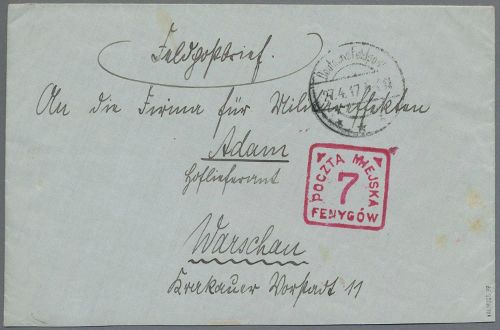 Feldpostbrief.
An die Firma für Militäreffekten
Adam
Hoflieferant
Warschau
Krakauer Vorstadt 11
POCZTA MIEJSKA
7
FENYGÓW
4.17